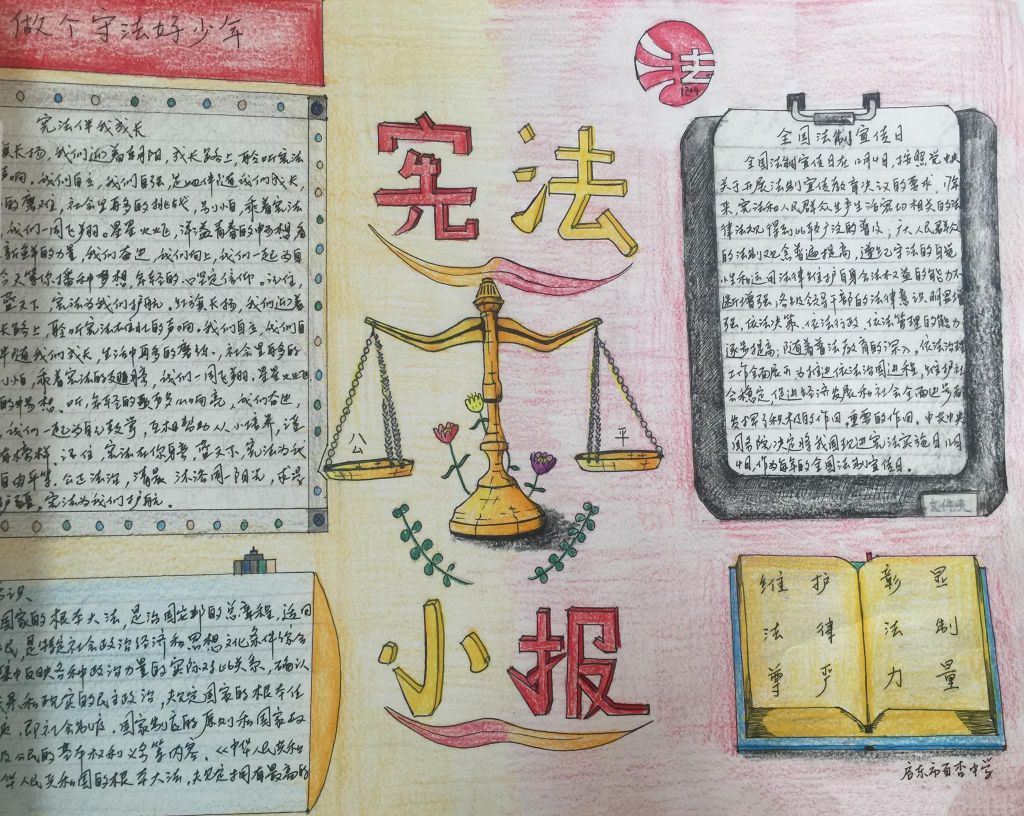 做个守法好少年
宪法伴我成长
长扬,我们迎着朝阳,成长路上,聆听宪法
声响。我们自立,我们自强,是她伴随我们成长,
的磨难,社会里再多的挑战,别小怕,乘着宪法
我们一同飞翔。星星火炬,洋溢着青春的
新鲜的力量,我们奋进,我们向上,我们一起为自
播种梦想
天下,宪法为我们护航。红旗长扬,我们迎着
长路上,聆听宪法不朽的声响。我们自立,我们自
伴随我们成长,生活中再多的磨练,社会里再多的
小怕,乘着宪法的翅膀,我们一同飞翔。星星火炬
的梦想。听,年轻的歌声多么响亮,我们奋进
我们一起为自
榜样,记住,宪法在你身旁,天下,宪法为我
自由平等,公正法治,清晨,沐浴同一阳光,
宪法为我们护航。
识
国家的根本大法,是治国安邦的总章程,适用
民,是特定社会政治经济和思想文化条件综合
集中反映各种政治力量的实际对比关系,确认
和现实的民主政治,规定国家的根本任
即社会制度、国家制度的原则和国家政
及公民的基本权利义务等内容。《中华人民共和
华人民共和国的根本大法,规定拥有最高的
宪法
公
平
小报
法
12.4
全国法制宣传日
全国法制宣传日在12月4日,按照党中央
关于开展法制宣传教育决议的要求,
来,宪法和人民群众生产生活密切相关的法
律法规得到比较广泛的普及;广大人民群众
的法制观念普遍提高,遵纪守法的自觉
性和运用法律维护自身合法权益的能力不
断增强;各级领导干部的法律意识明显增
强,依法决策、依法行政、依法管理的能力
逐步提高;随着普法教育的深入,依法治理
工作全面展开,为推进依法治国进程,维护社
会稳定,促进经济发展和社会全面进步都
发挥了积极的作用,重要的作用。中共中央
国务院决定将我国现进宪法实施日12月
4日,作为每年的全国法制宣传日。
文件夹
维护 彰显
法律 法制
尊严 力量
启东市百杏中学